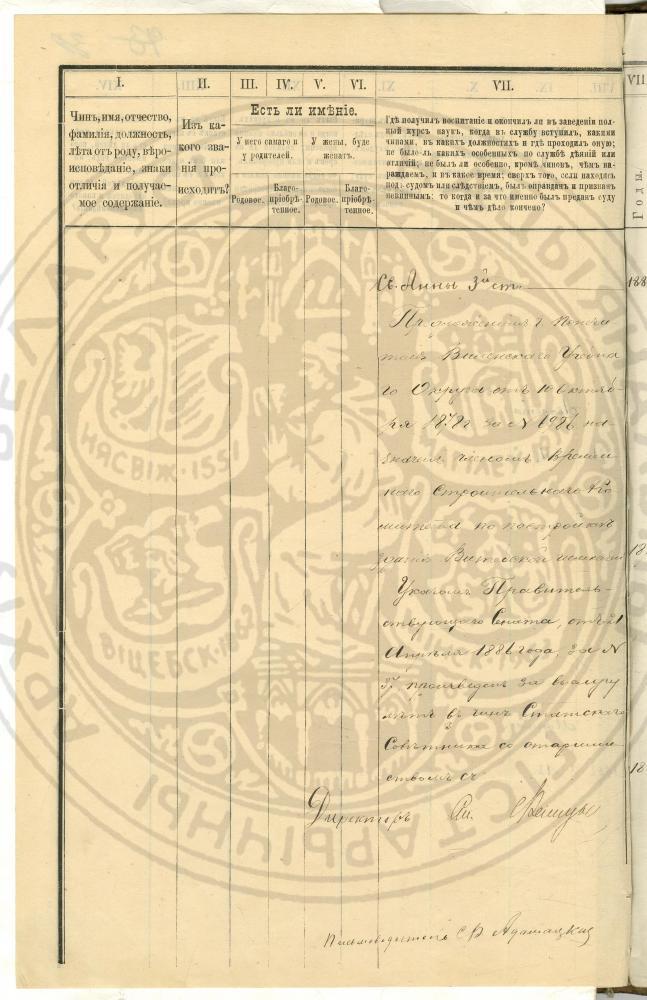 I.
II.
III.
IV.
V.
VI.
VII.
VII
Чинъ, имя, отчество,
фамилія, должность,
лѣта отъ роду, вѣро-
исповѣданіе, знаки
отличія и получае-
мое содержаніе.
Изъ ка-
кого зва-
нія про-
исходитъ?
Есть ли имѣніе.
У него самаго и
у родителей.
У жены, буде
женатъ.
Родовое.
Благо-
пріобрѣ-
тенное.
Родовое.
Благо-
пріобрѣ-
тенное.
Гдѣ получилъ воспитаніе и окончилъ ли въ заведеніи пол-
ный курсъ наукъ, когда въ службу вступилъ, какими
чинами, въ какихъ должностяхъ и гдѣ проходилъ оную;
не было-ль какихъ особенныхъ по службѣ дѣяній или
отличій; не былъ ли особенно, кромѣ чиновъ, чѣмъ на-
раждаемъ, и въ какое время; сверхъ того, если находясь
подъ судомъ или слѣдствіемъ, былъ оправданъ и признанъ
невиннымъ: то когда и за что именно былъ преданъ суду
и чѣмъ дѣло кончено?
Годы.
Св. Анны 3й ст.
188
Виленскаго Учебна
го Округа отъ 10 Октяб-
ря за №
значенъ членомъ Времен
наго Строительнаго Ко
митета по постройкѣ
зданія Витебской гимназіи
18
Указомъ Правитель-
ствующаго Сената, отъ 21
Апрѣля 1886 года, за №
37 произведенъ за выслугу
лѣтъ въ чинъ Статскаго
Совѣтника со старшин-
ствомъ съ
18
Директоръ
Письмоводитель
НЯСВІЖ-1551
АРХІ
СТАРЫЧНЫ